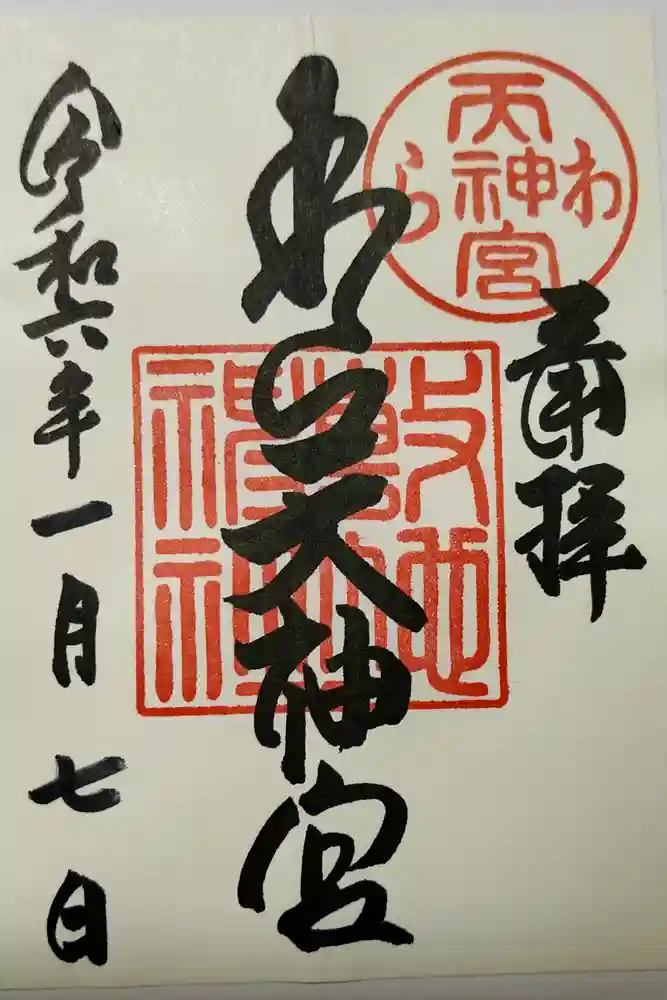 奉拝
わら
天神宮
敷地
神社
わら天神宮
令和六年一月七日